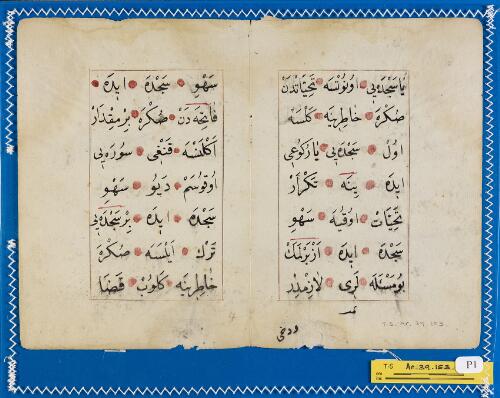 یا سجده‌یی اونوتسه تحیاتدن
صکره خاطرینه کلسه
اول سجده‌یی یا رکوعی
ایده ینه تکرار
تحیات اوقیه سهو
سجده ایده ازبرلمك
بو مسئله لری لازمدر
T-S. Ar. 39. 153.
سهو سجده ایده
فاتحه‌دن صکره بر مقدار
اکلنسه قنغی سوره‌یی
اوقوسم دیو سهو
سجده ایده بر سجده‌یی
ترك ایلسه صکره
خاطرینه کلوب قضا
ودخی
T-S Ar.39.153 P1